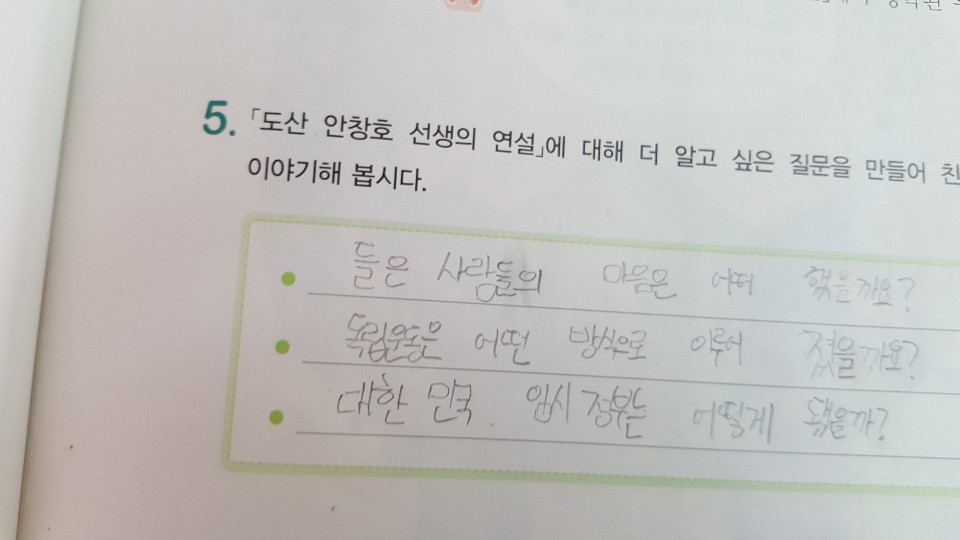 5. 「도산 안창호 선생의 연설」에 대해 더 알고 싶은 질문을 만들어 친
이야기해 봅시다.
들은 사람들의 마음은 어떠 했을까요?
독립운동은 어떤 방식으로 이루어 졌을까요?
대한 민국 임시 정부는 어떻게 됐을까?